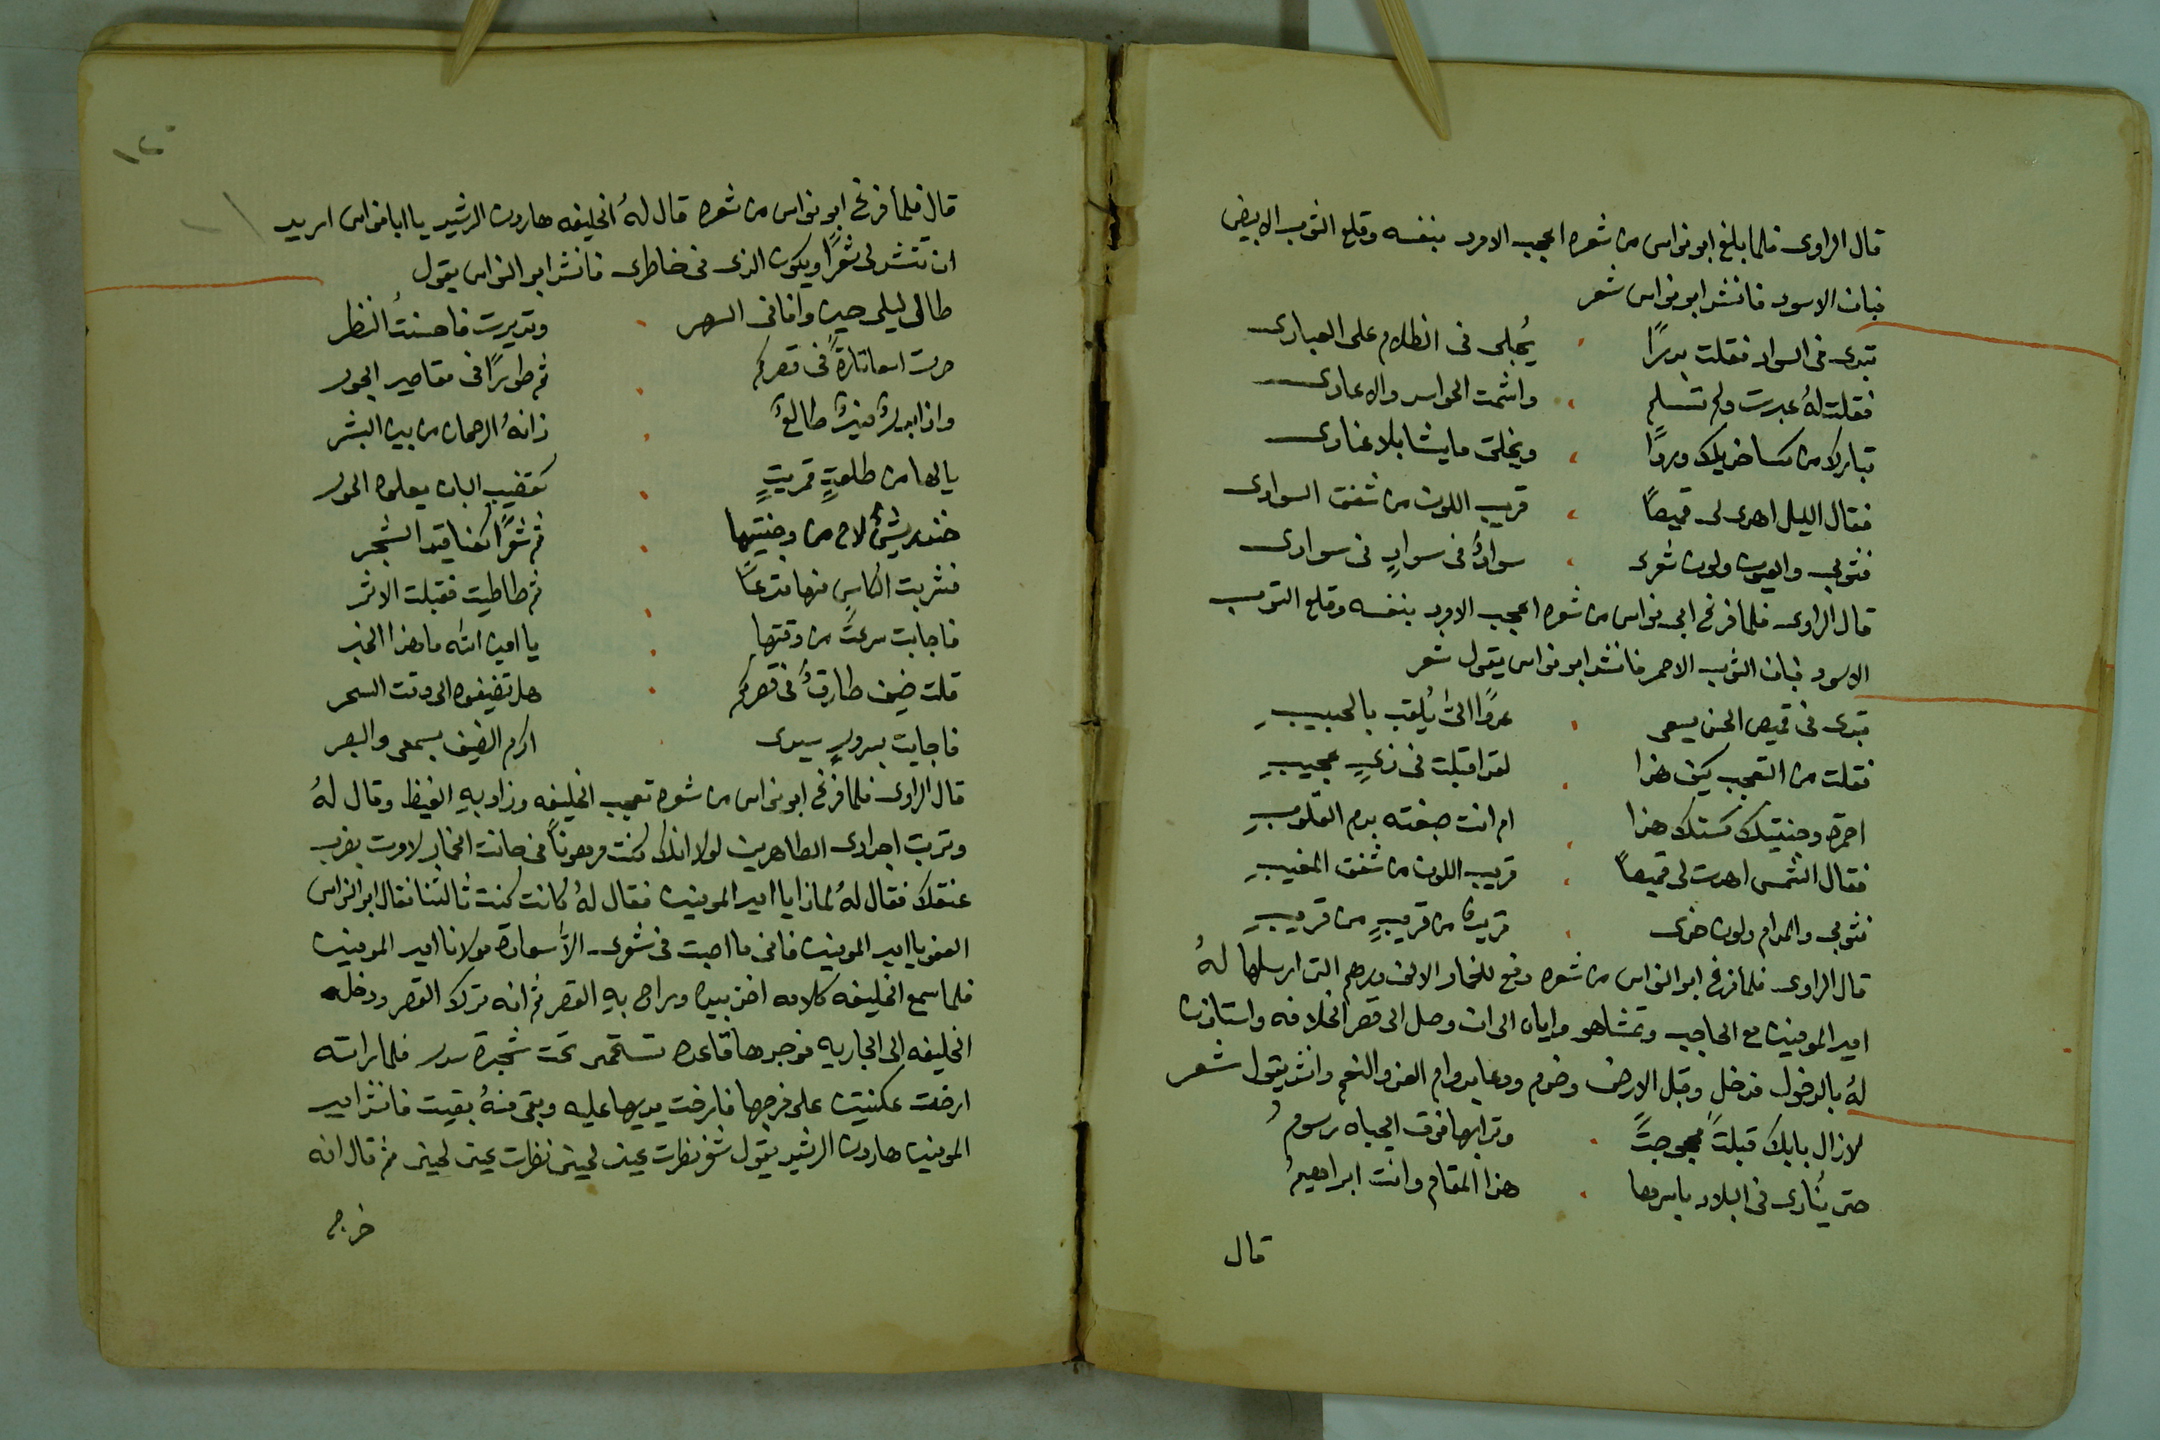 قال الراوى فلما بلغ ابو نواس من شعره اعجب الامرد بنفسه وقلع الثوب الابيض
فبان الاسود فانشد ابو نواس شعر
تبدى فى السواد فقلت بدرًا يُجلى فى الظلام على العبادى
فقلت لهُ عبرت ولم تسلم واشمت الحواسد والاعادى
تباركا من كسا خديك وردًا ويخلق ما يشا بلا عنادى
فقال الليل اهدى لى قميصًا قريب اللون من شفق السوادى
فثوبى والعيون ولون شعرى سوادٌ فى سوادٍ فى سوادى
قال الراوى فلما فرغ ابى نواس من شعره اعجب الامرد بنفسه وقلع الثوب
الاسود فبان الثوب الاحمر فانشد ابو نواس يقول شعر
تبدى فى قميص الحسن يسعى عدوًا الىّ يُلقب بالحبيبِ
فقلت من التعجب كيف هذا لقد اقبلت فى زىٍ عجيبِ
احمرة وجنتيك كستك هذا ام انت صبغته بدم القلوبِ
فقال الشمس اهدت لى قميصًا قريب اللون من شفق المغيبِ
فثوبى والمدام ولون خدى قريبٌ من قريبٍ من قريبِ
قال الراوى فلما فرغ ابو النواس من شعره دفع للخمار الالف درهم التى ارسلها لهُ
امير المومنين مع الحاجب وتمشا هو واياه الى ان وصل الى قصر الخلافه واستاذن
لهُ بالدخول فدخل وقبل الارض وخدم ودعا بدوام العز والنعم وانشد يقول شعر
لازال بابك قبلتً محجوجتً وترابها فوق الجباه رسومُ
حتى يُنادى فى البلاد باسرها هذا المقام وانت ابراهيمُ
قال
١٢٠
قال فلما فرغ ابو نواس من شعره قال لهُ الخليفه هارون الرشيد يا ابا نواس اريد
ان تنشد لى شعرًا ويكون الذى فى خاطرى فانشد ابو النواس يقول
طال ليلى حين وافانى السهر وتديرت فاحسنتُ النظر
صرت اسعا تارةً فى قصركم ثم طورًا فى مقاصير الحجر
واذا بدرٌ منيرٌ طالعٌ زانهُ الرحمان من بين البشر
يا لها من طلعتٍ قمريتٍ كقضيب البان يعلوه الحور
لاح من وجنتيها
فشربت الكاس منها ثم طاطيت فقبلت الاثر
فاجابت سرعتً من وقتها يا امين الله ما هذا الخبر
قلت ضيف طارقٌ فى قصركم هل تضيفوه الى وقت السحر
فاجابت بسرورٍ سيدى اكرم الضيف بسمعى والبصر
قال الراوى فلما فرغ ابو نواس من شعره تعجب الخليفه وزاد بهِ الغيظ وقال لهُ
وتربت اجدادى الطاهرين لولا انك كنت مرهونًا فى حانت الخمار لامرت بضرب
عنقك فقال لهُ لماذا يا امير المومنين فقال لهُ كانت كنت ثالثنا فقال ابو النواس
العفو يا امير المومنين فاننى ما اصبت فى شعرى الا بسعادة مولانا امير المومنين
فلما سمع الخليفه كلامه اخذ بيده وراح بهِ القصر ثم انه ترك القصر ودخل
الخليفه الى الجاريه فوجدها قاعده تستحمى تحت شجرة سدر فلما راته
ارخت عكنتين على فرجها فارخت يديها عليه وبقى منهُ بقيت فانشد امير
المومنين هارون الرشيد يقول نظرت عينى لحينى نظرت عينى لحينى ثم قال انه
خرج